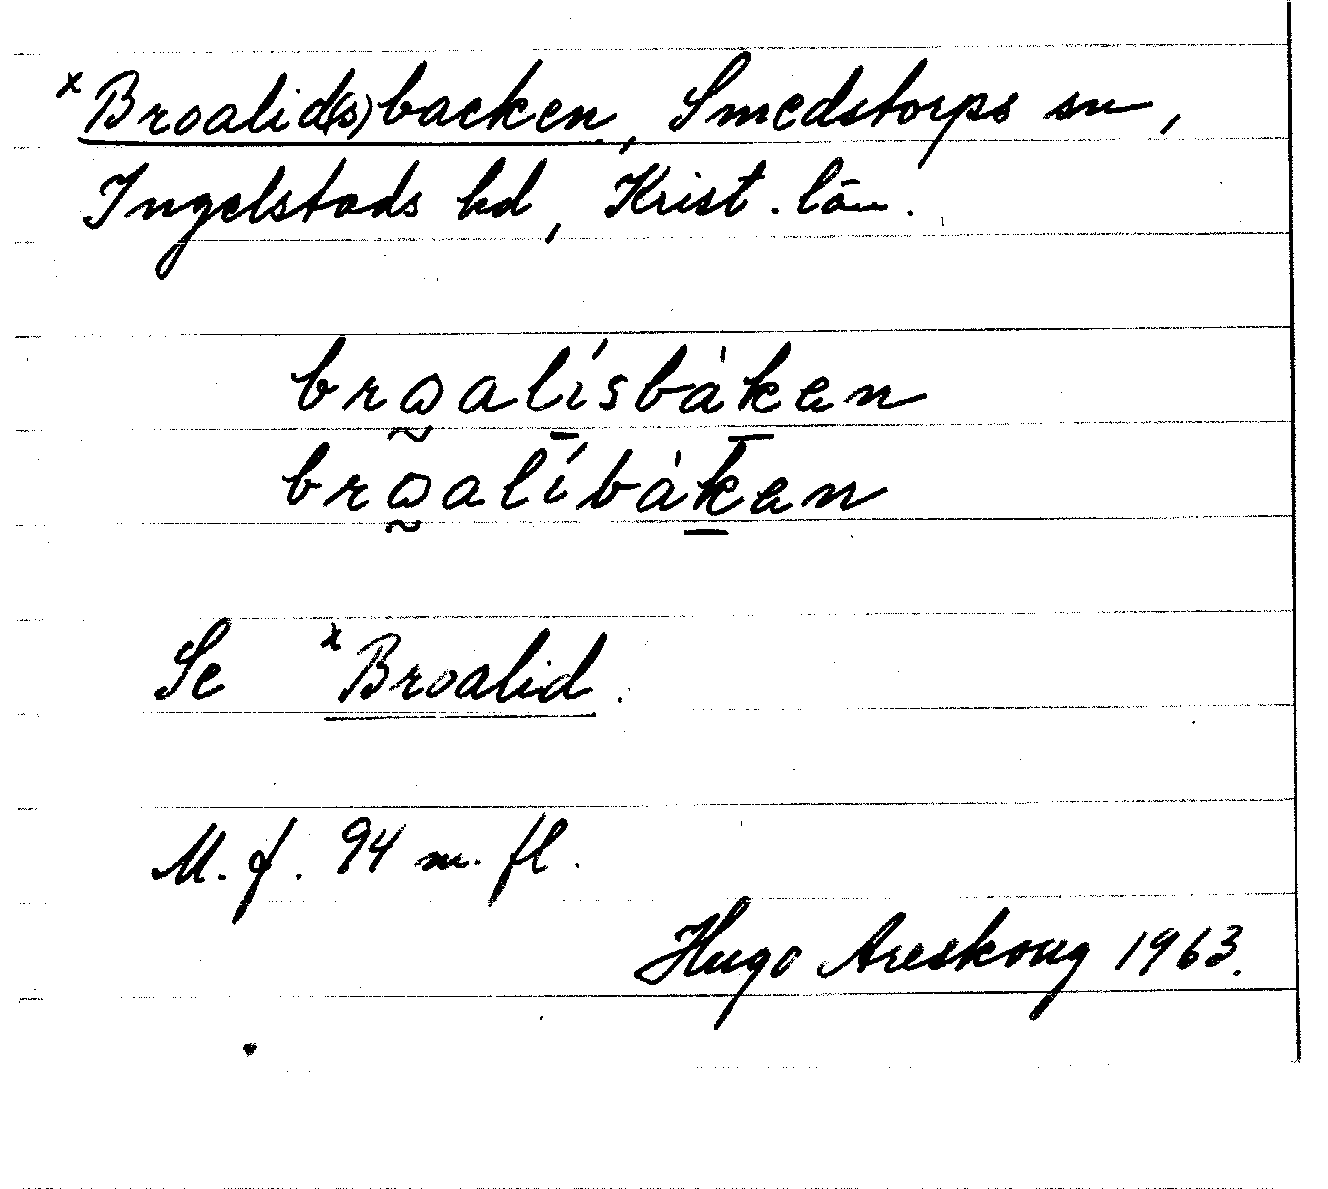 x Broalid(s)backen, Smedstorps sn,
Ingelstads hd, Krist. län.
brωalísbàken
brωalíbàken
Se x Broalid.
M. f. 94 m. fl.
Hugo Areskoug 1963.